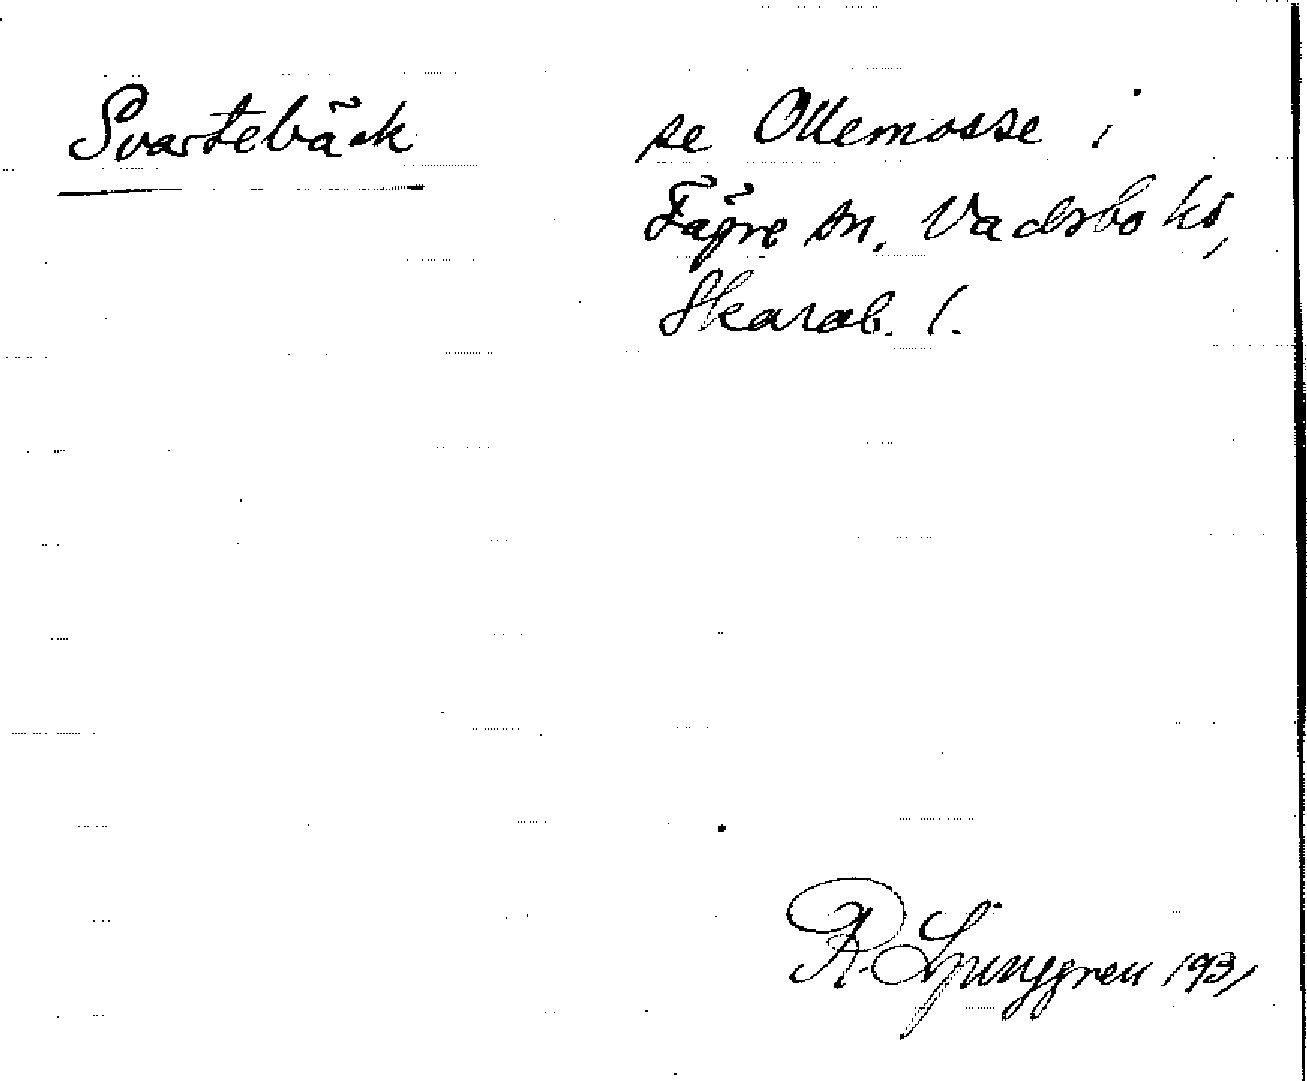 Svartebäck se Ollemosse i
Fägre sn, Vadsbo hd,
Skarab. l.
R. Ljunggren 1931